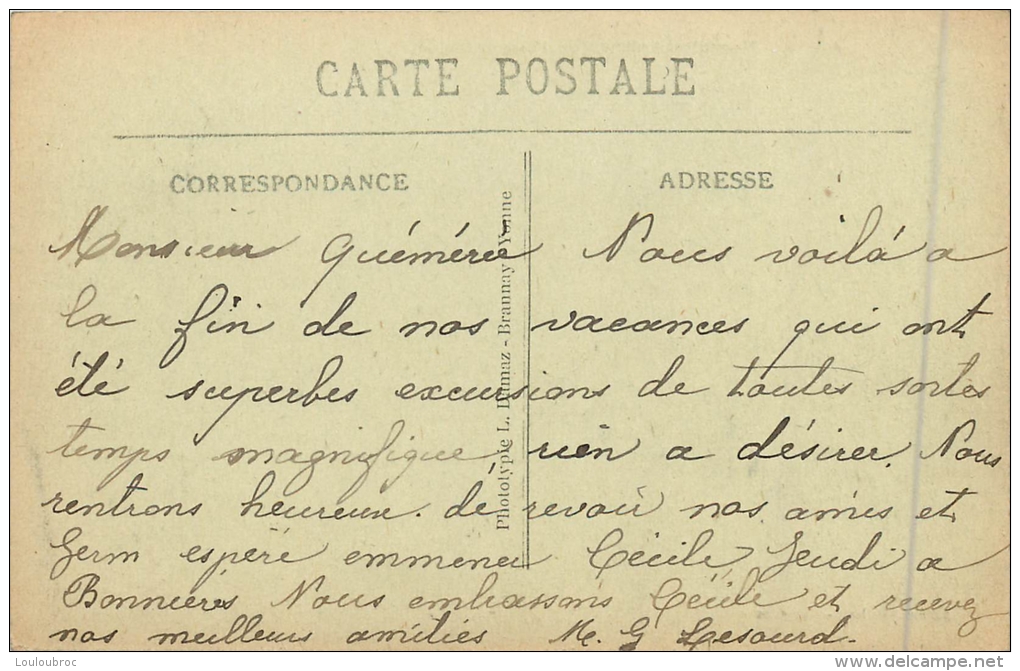 CARTE POSTALE
CORRESPONDANCE
ADRESSE
Monsieur Quéméréé Nous voilá a
la fin de nos vacances qui ont
été superbes excursions de toutes sortes
temps magnifique rien a désirer. Nous
rentrons heureux de revoir nos amis et
Germ espère emmener Cécile Jeudi a
Bonnières Nous embrassons Cécile et recevez
nos meilleurs amitiés M. G Lesourd.
Phototypie L. Dumaz - Brannay - Yonne
Louloubroc
www.delcampe.net